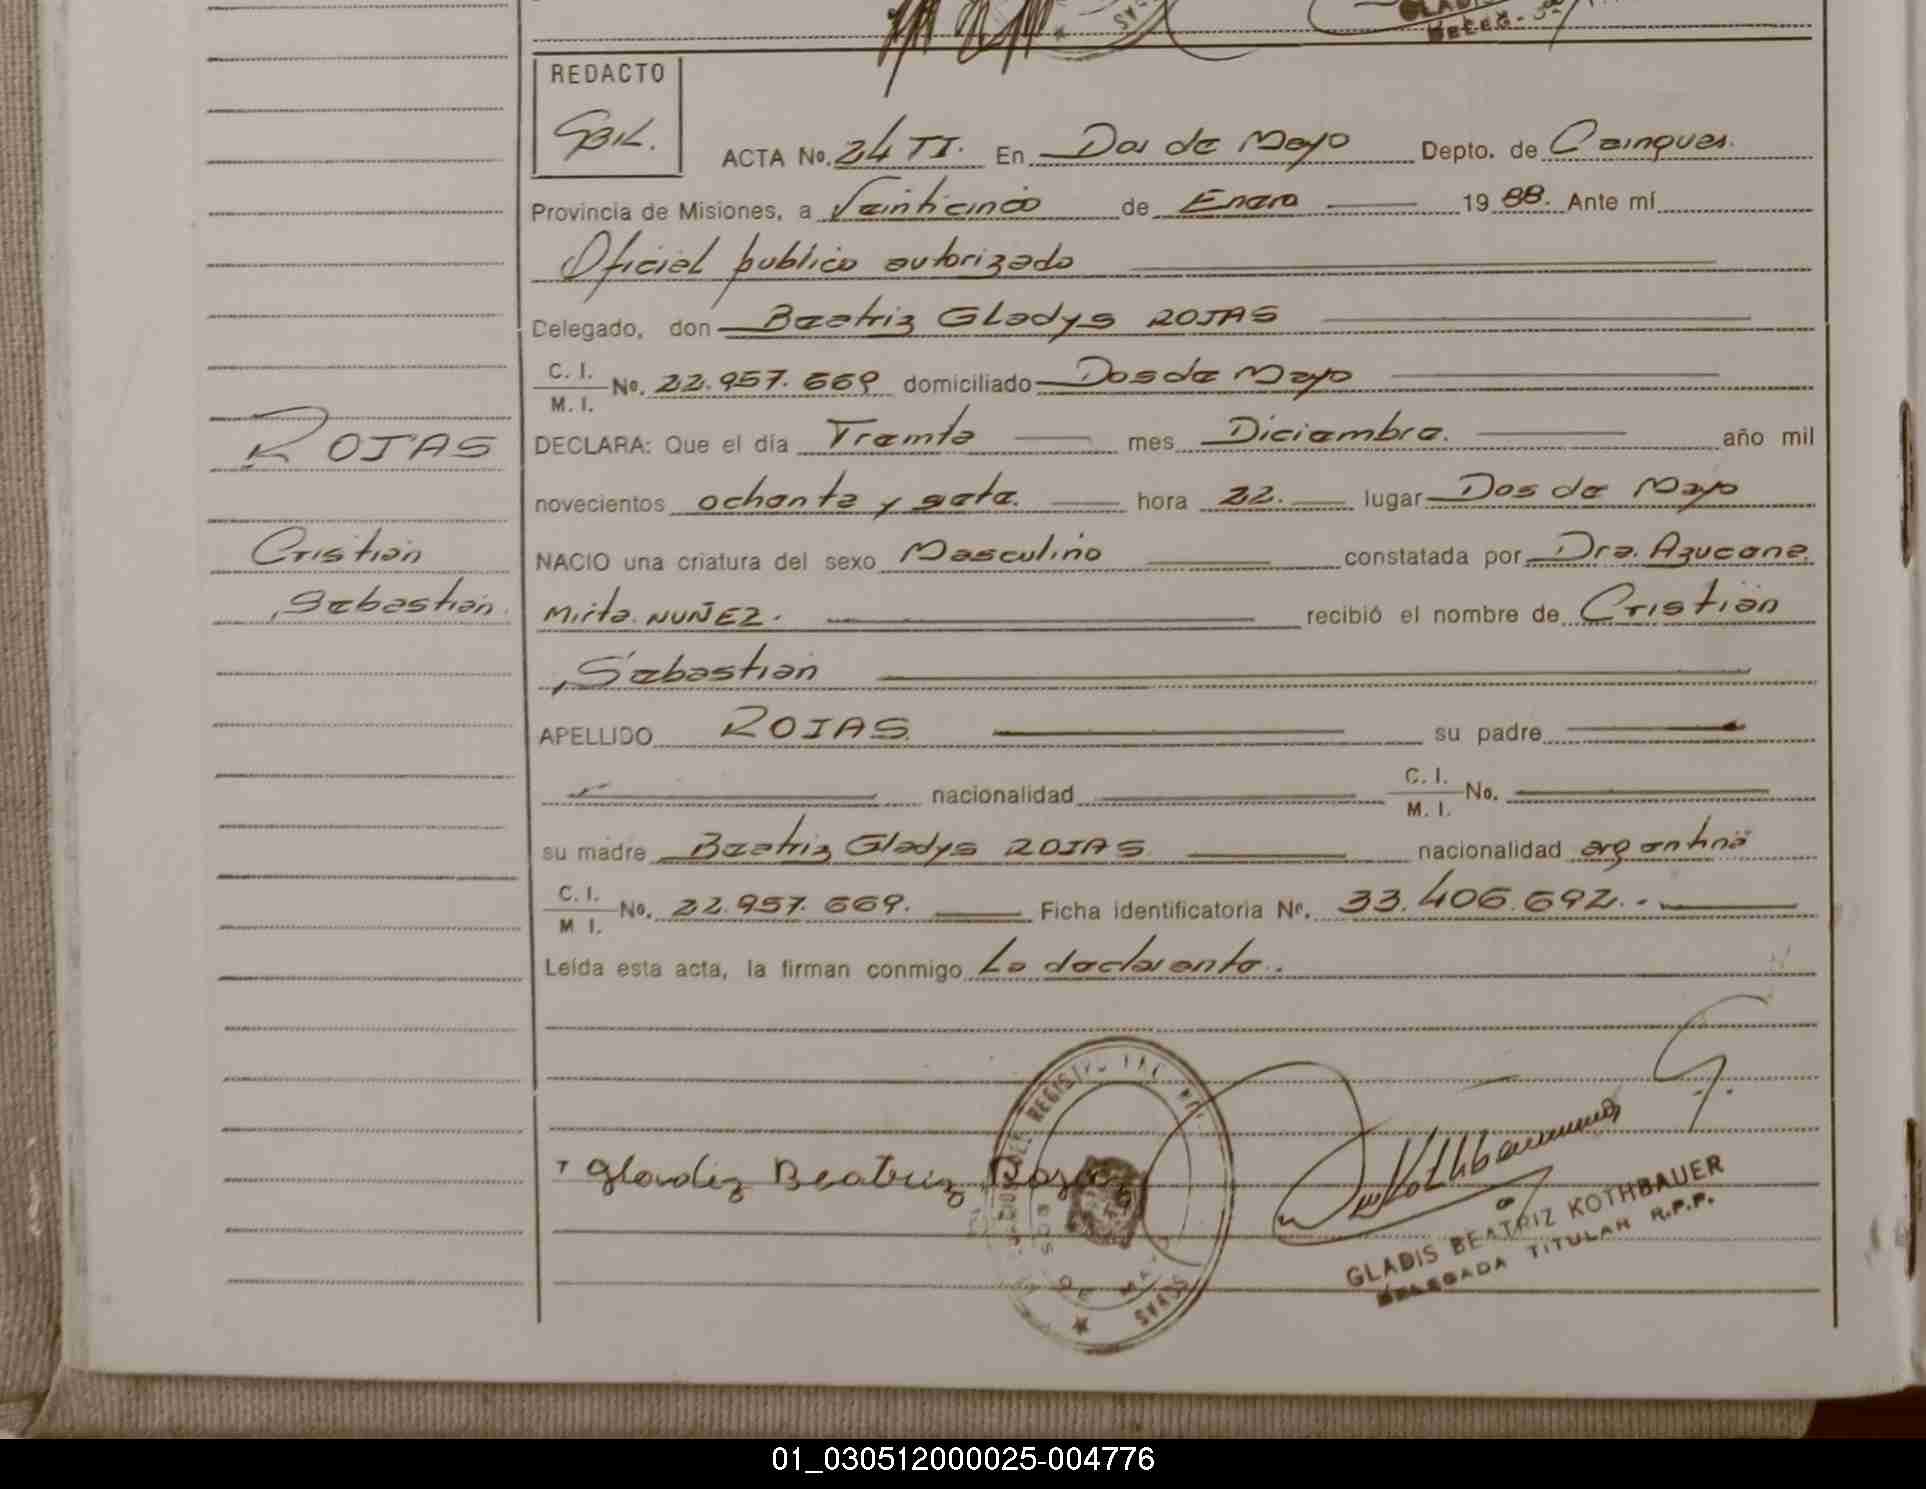 REDACTO
GBK.
ACTA No. 24 TI. En Dos de Mayo Depto. de Cainguas.
Provincia de Misiones, a Veinticinco de Enero 19 88. Ante mí
Oficial publico autorizado
Delegado, don Beatriz Gladys ROJAS
C. I.
M. I. No. 22.957.669 domiciliado Dos de Mayo
ROJAS
DECLARA: Que el día Treinta mes Diciembre. año mil
novecientos ochenta y siete. hora 22. lugar Dos de Mayo
Cristian
NACIO una criatura del sexo Masculino constatada por Dra. Azucena
Sebastian.
Mirta NUÑEZ. recibió el nombre de Cristian
Sebastian
APELLIDO ROJAS su padre
nacionalidad C. I.
M. I. No.
su madre Beatriz Gladys ROJAS nacionalidad argentina
C. I.
M I. No. 22.957.669. Ficha identificatoria Nº. 33.406.692.-
Leída esta acta, la firman conmigo La declarante.
Gladiz Beatriz Rojaz
DEL REGISTRO
DOS DE MAYO
GLADIS BEATRIZ KOTHBAUER
DELEGADA TITULAR R.P.P.
01_030512000025-004776